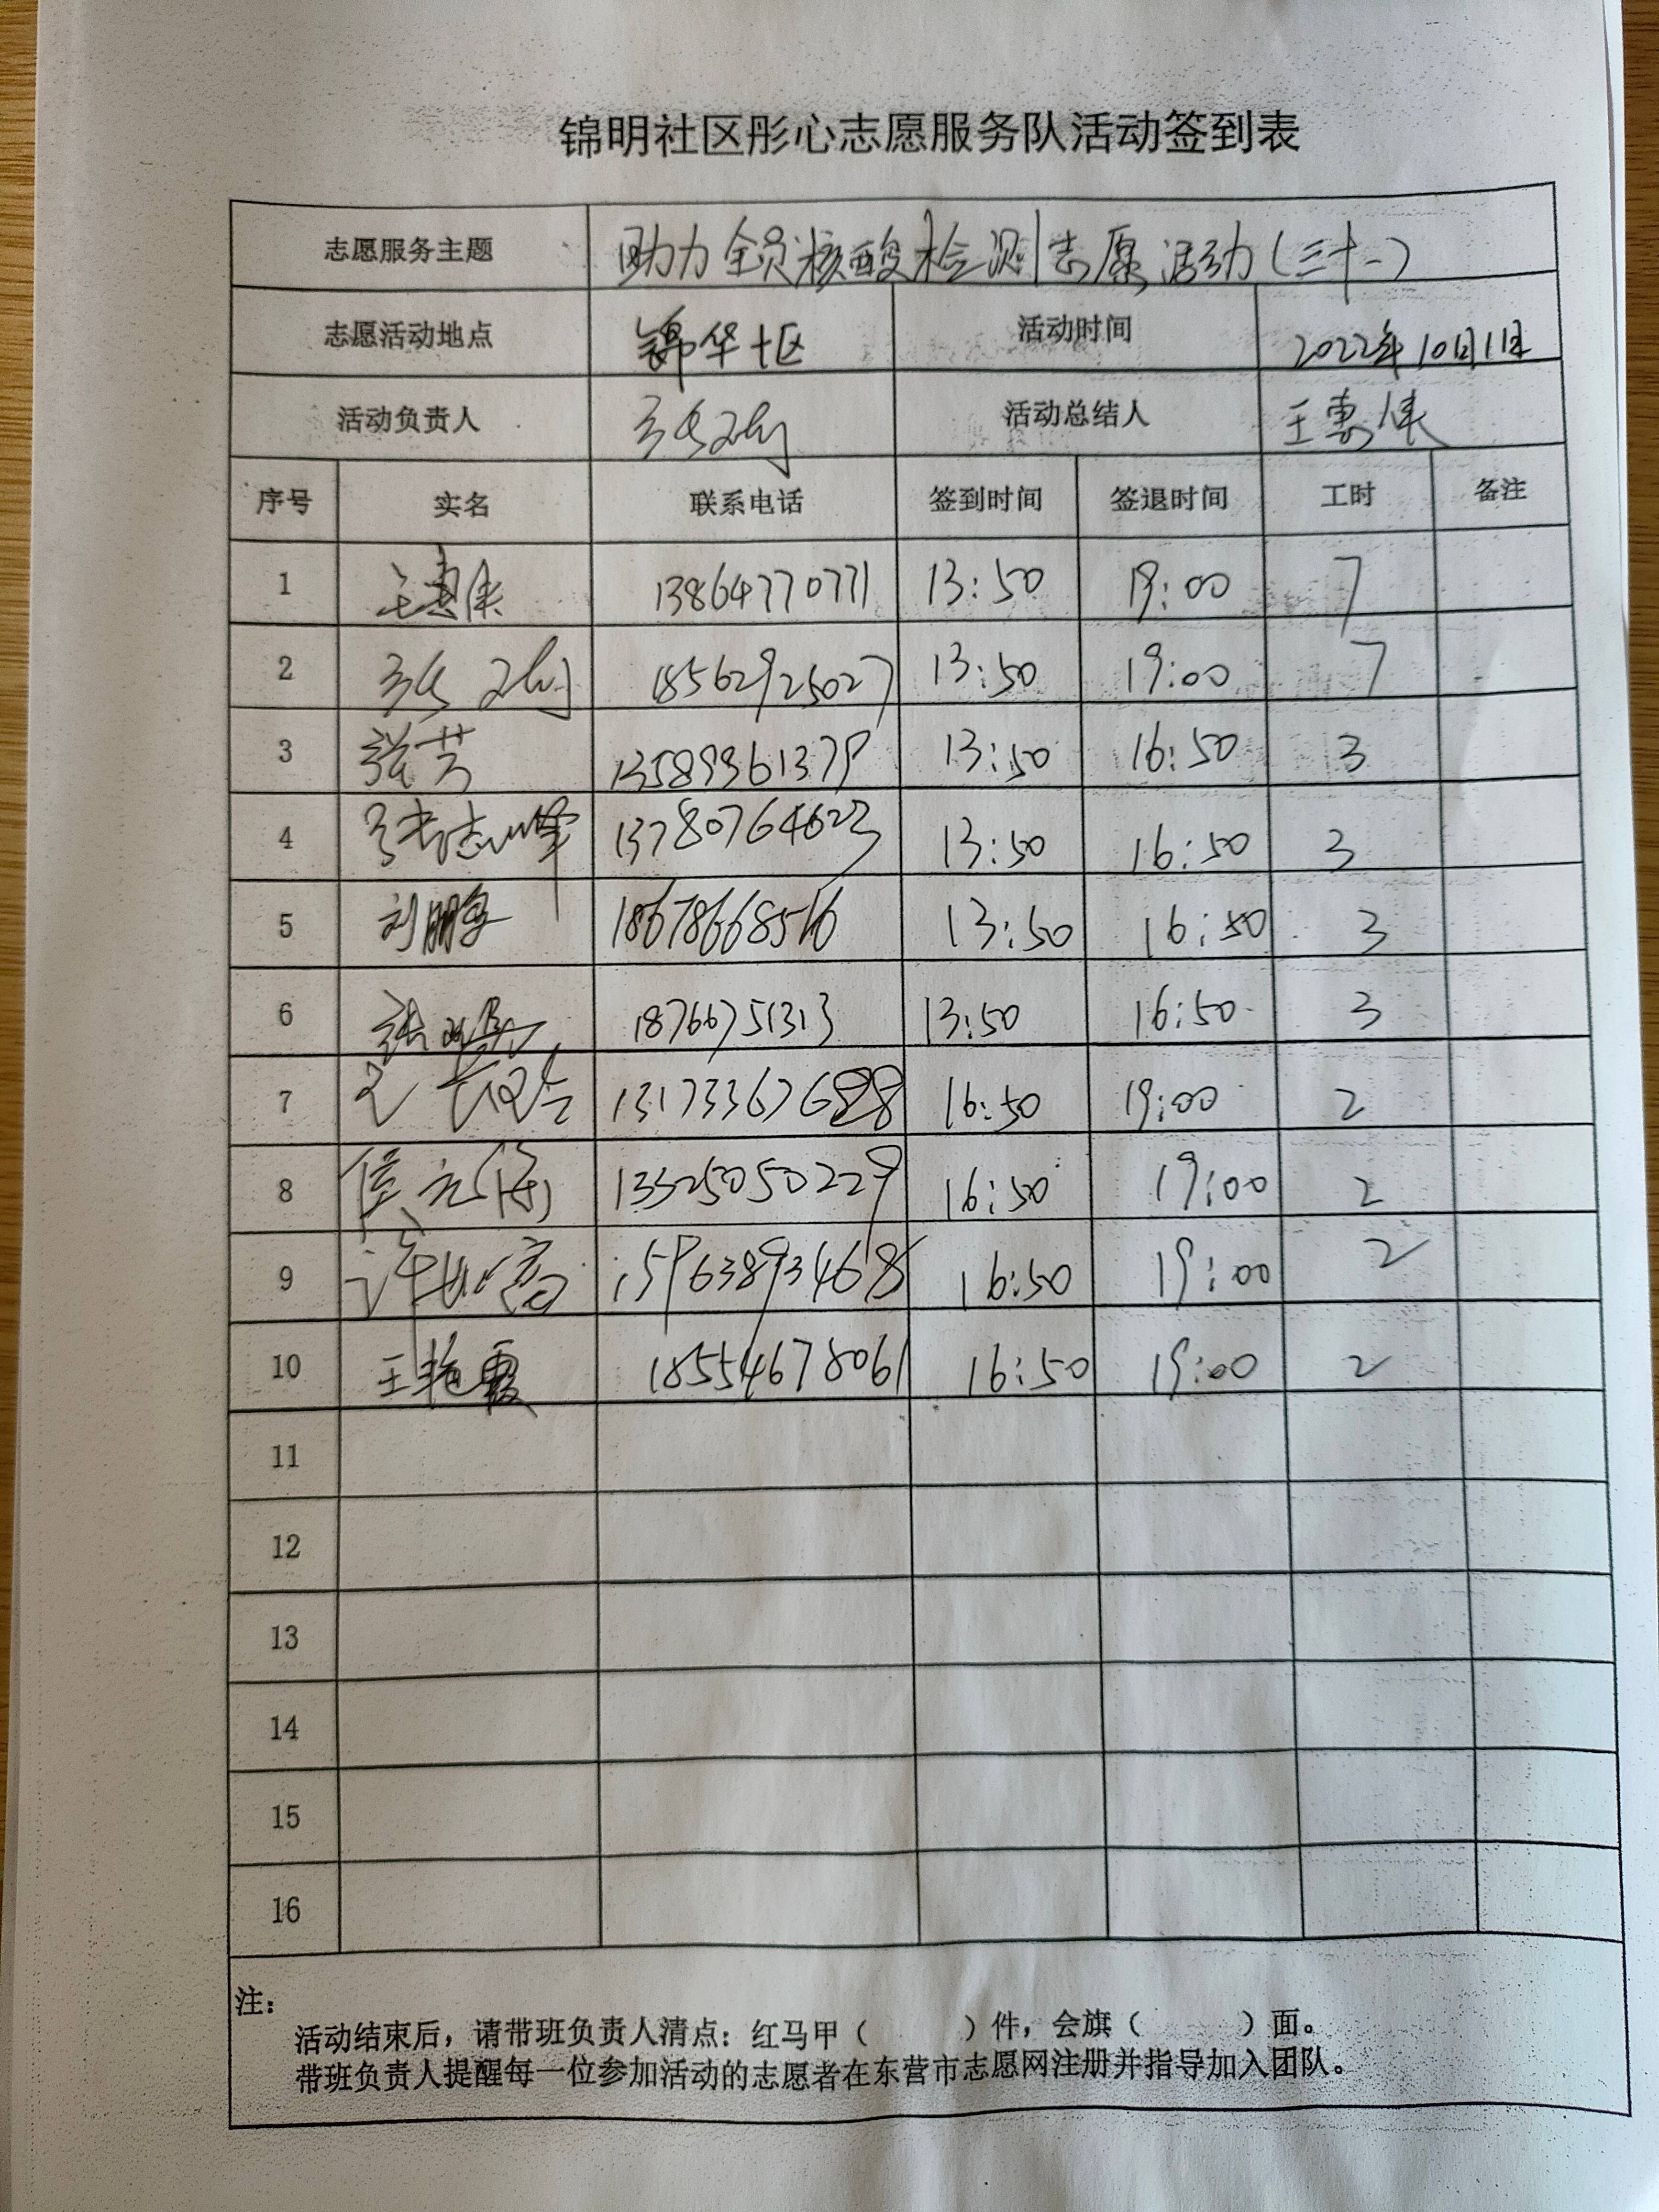 锦明社区彤心志愿服务队活动签到表
志愿服务主题 助力全员核酸检测志愿活动(三十一)
志愿活动地点 锦华七区 活动时间 2022年10月11日
活动负责人 活动总结人 王惠
序号 实名 联系电话 签到时间 签退时间 工时 备注
1 王惠 13864770771 13:50 19:00 7
2 18562925027 13:50 19:00 7
3 张芳 13589961379 13:50 16:50 3
4 李志峰 13780764623 13:50 16:50 3
5 刘鹏 18678668516 13:50 16:50 3
6 张 18766751313 13:50 16:50 3
7 王 13173367688 16:50 19:00 2
8 侯元 13325050229 16:50 19:00 2
9 15963893468 16:50 19:00 2
10 王艳霞 18554678061 16:50 19:00 2
11
12
13
14
15
16
注:
活动结束后,请带班负责人清点:红马甲( )件,会旗( )面。
带班负责人提醒每一位参加活动的志愿者在东营市志愿网注册并指导加入团队。